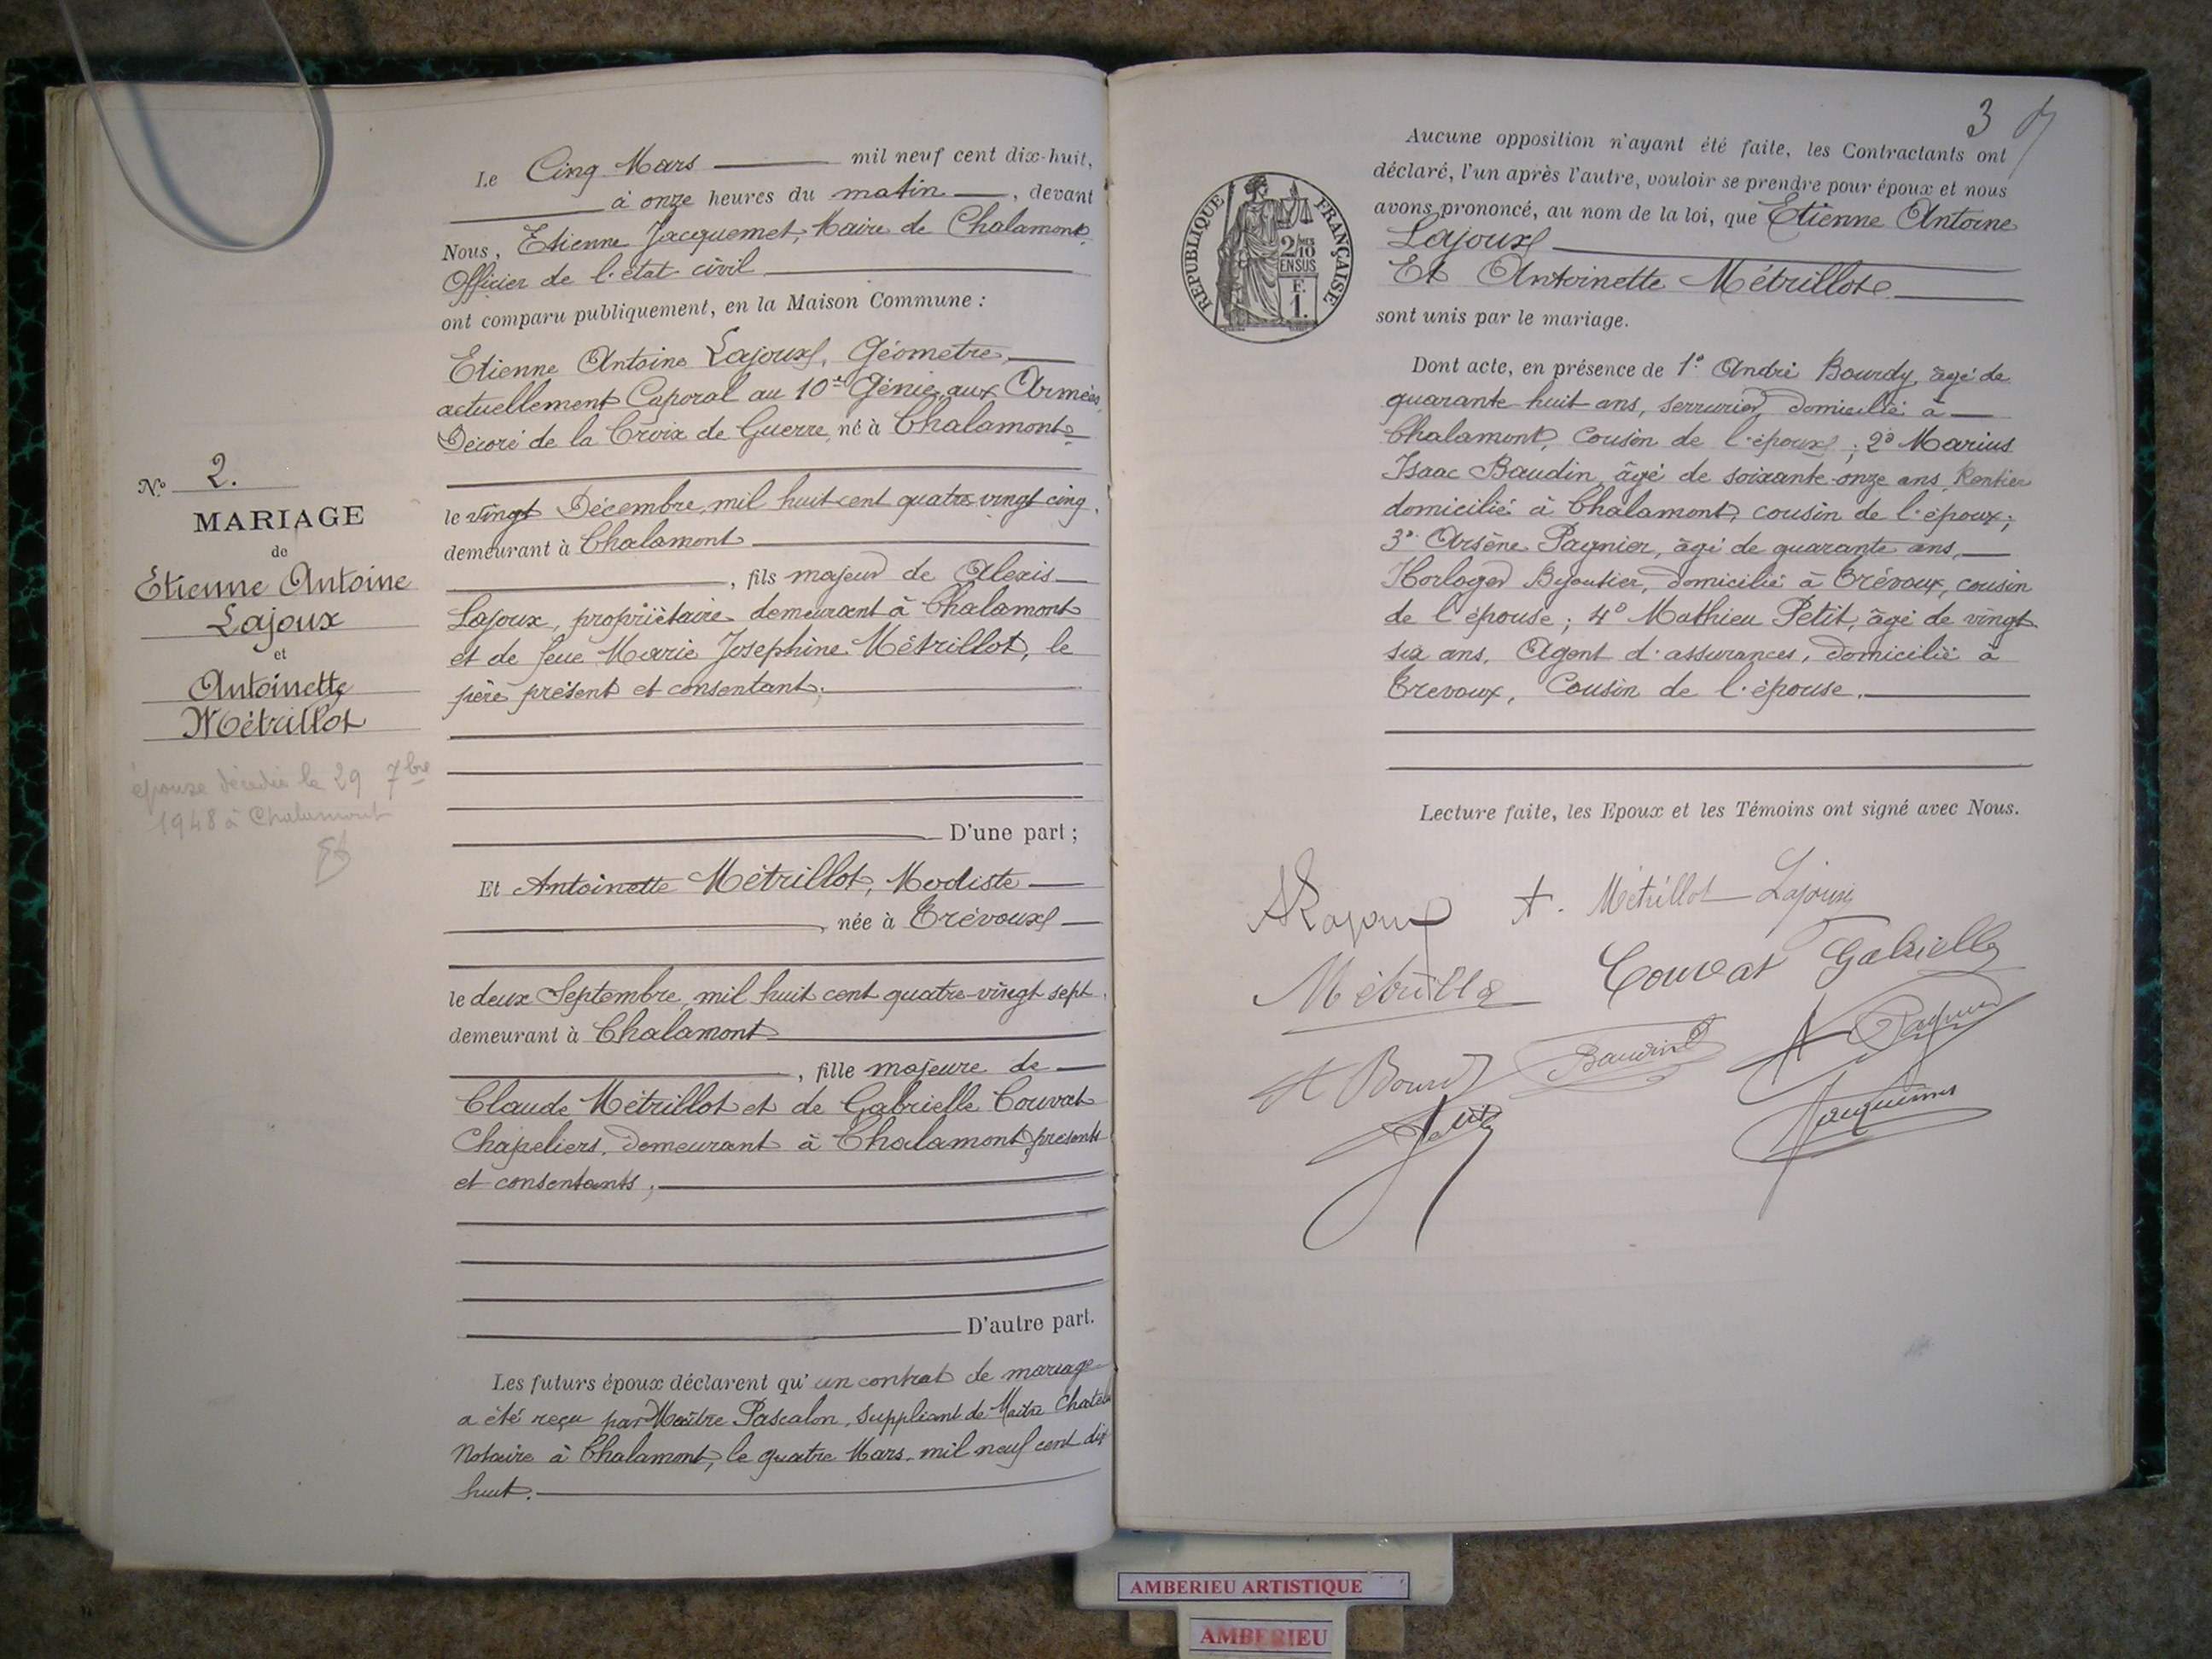 Le Cinq Mars mil neuf cent dix-huit,
à onze heures du matin, devant
Nous, Etienne Jacquemet, Maire de Chalamont
Officier de l'état civil
ont comparu publiquement, en la Maison Commune :
Etienne Antoine Lajoux, Géometre,
actuellement Caporal au 10e Génie, aux Armées,
Décoré de la Croix de Guerre, né à Chalamont
le vingt Décembre, mil huit cent quatre-vingt cinq,
demeurant à Chalamont
, fils majeur de Alexis
Lajoux, propriètaire demeurant à Chalamont
et de feue Marie Josephine Métrillot, le
père présent et consentant,
D'une part ;
Et Antoinette Métrillot, Modiste
, née à Trévoux
le deux Septembre, mil huit cent quatre-vingt sept,
demeurant à Chalamont
, fille majeure de
Claude Métrillot et de Gabrielle Couvat
Chapeliers, demeurant à Chalamont, présents
et consentants ;
D'autre part.
Les futurs époux déclarent qu'un contrat de mariage
a été reçu par Maître Pascalon, Suppliant de Maitre
Notaire à Chalamont, le quatre Mars, mil neuf cent dix
huit.
No 2.
MARIAGE
de
Etienne Antoine
Lajoux
et
Antoinette
Métrillot
épouse décédée le 29 7bre
1948 à Chalamont
3
RÉPUBLIQUE FRANÇAISE
2/10
EN SUS
F.
1.
Aucune opposition n'ayant été faite, les Contractants ont
déclaré, l'un après l'autre, vouloir se prendre pour époux et nous
avons prononcé, au nom de la loi, que Etienne Antoine
Lajoux
Et Antoinette Métrillot
sont unis par le mariage.
Dont acte, en présence de 1° André Bourdy, âgé de
quarante huit ans, serrurier, domicilié à
Chalamont, Cousin de l'époux ; 2° Marius
Isaac Baudin, âgé de soixante-onze ans, Rentier
domicilié à Chalamont, cousin de l'époux ;
3° Arsène Pagnier, âgé de quarante ans,
Horloger Bijoutier, domicilié à Trévoux, cousin
de l'épouse ; 4° Mathieu Petit, âgé de vingt
six ans, Agent d'assurances, domicilié à
Trevoux, Cousin de l'épouse.
Lecture faite, les Epoux et les Témoins ont signé avec Nous.
Lajoux A. Métrillot Lajoux
Métrillot Couvat Gabrielle
A Bourdy Baudin A Pagnier
Petit Jacquemet
AMBERIEU ARTISTIQUE
AMBERIEU